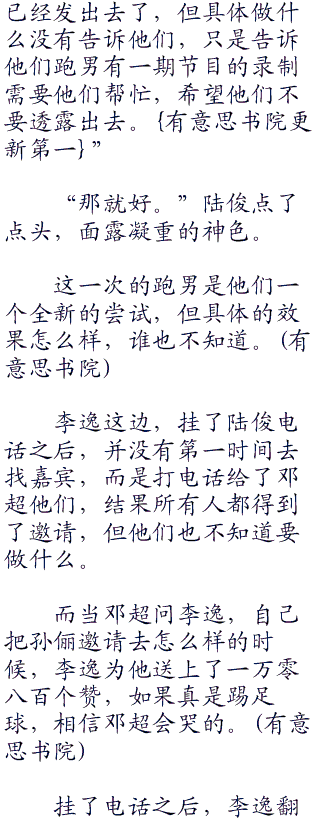 已经发出去了，但具体做什
么没有告诉他们，只是告诉
他们跑男有一期节目的录制
需要他们帮忙，希望他们不
要透露出去。{有意思书院更
新第一}”
“那就好。”陆俊点了
点头，面露凝重的神色。
这一次的跑男是他们一
个全新的尝试，但具体的效
果怎么样，谁也不知道。(有
意思书院)
李逸这边，挂了陆俊电
话之后，并没有第一时间去
找嘉宾，而是打电话给了邓
超他们，结果所有人都得到
了邀请，但他们也不知道要
做什么。
而当邓超问李逸，自己
把孙俪邀请去怎么样的时
候，李逸为他送上了一万零
八百个赞，如果真是踢足
球，相信邓超会哭的。(有意
思书院)
挂了电话之后，李逸翻